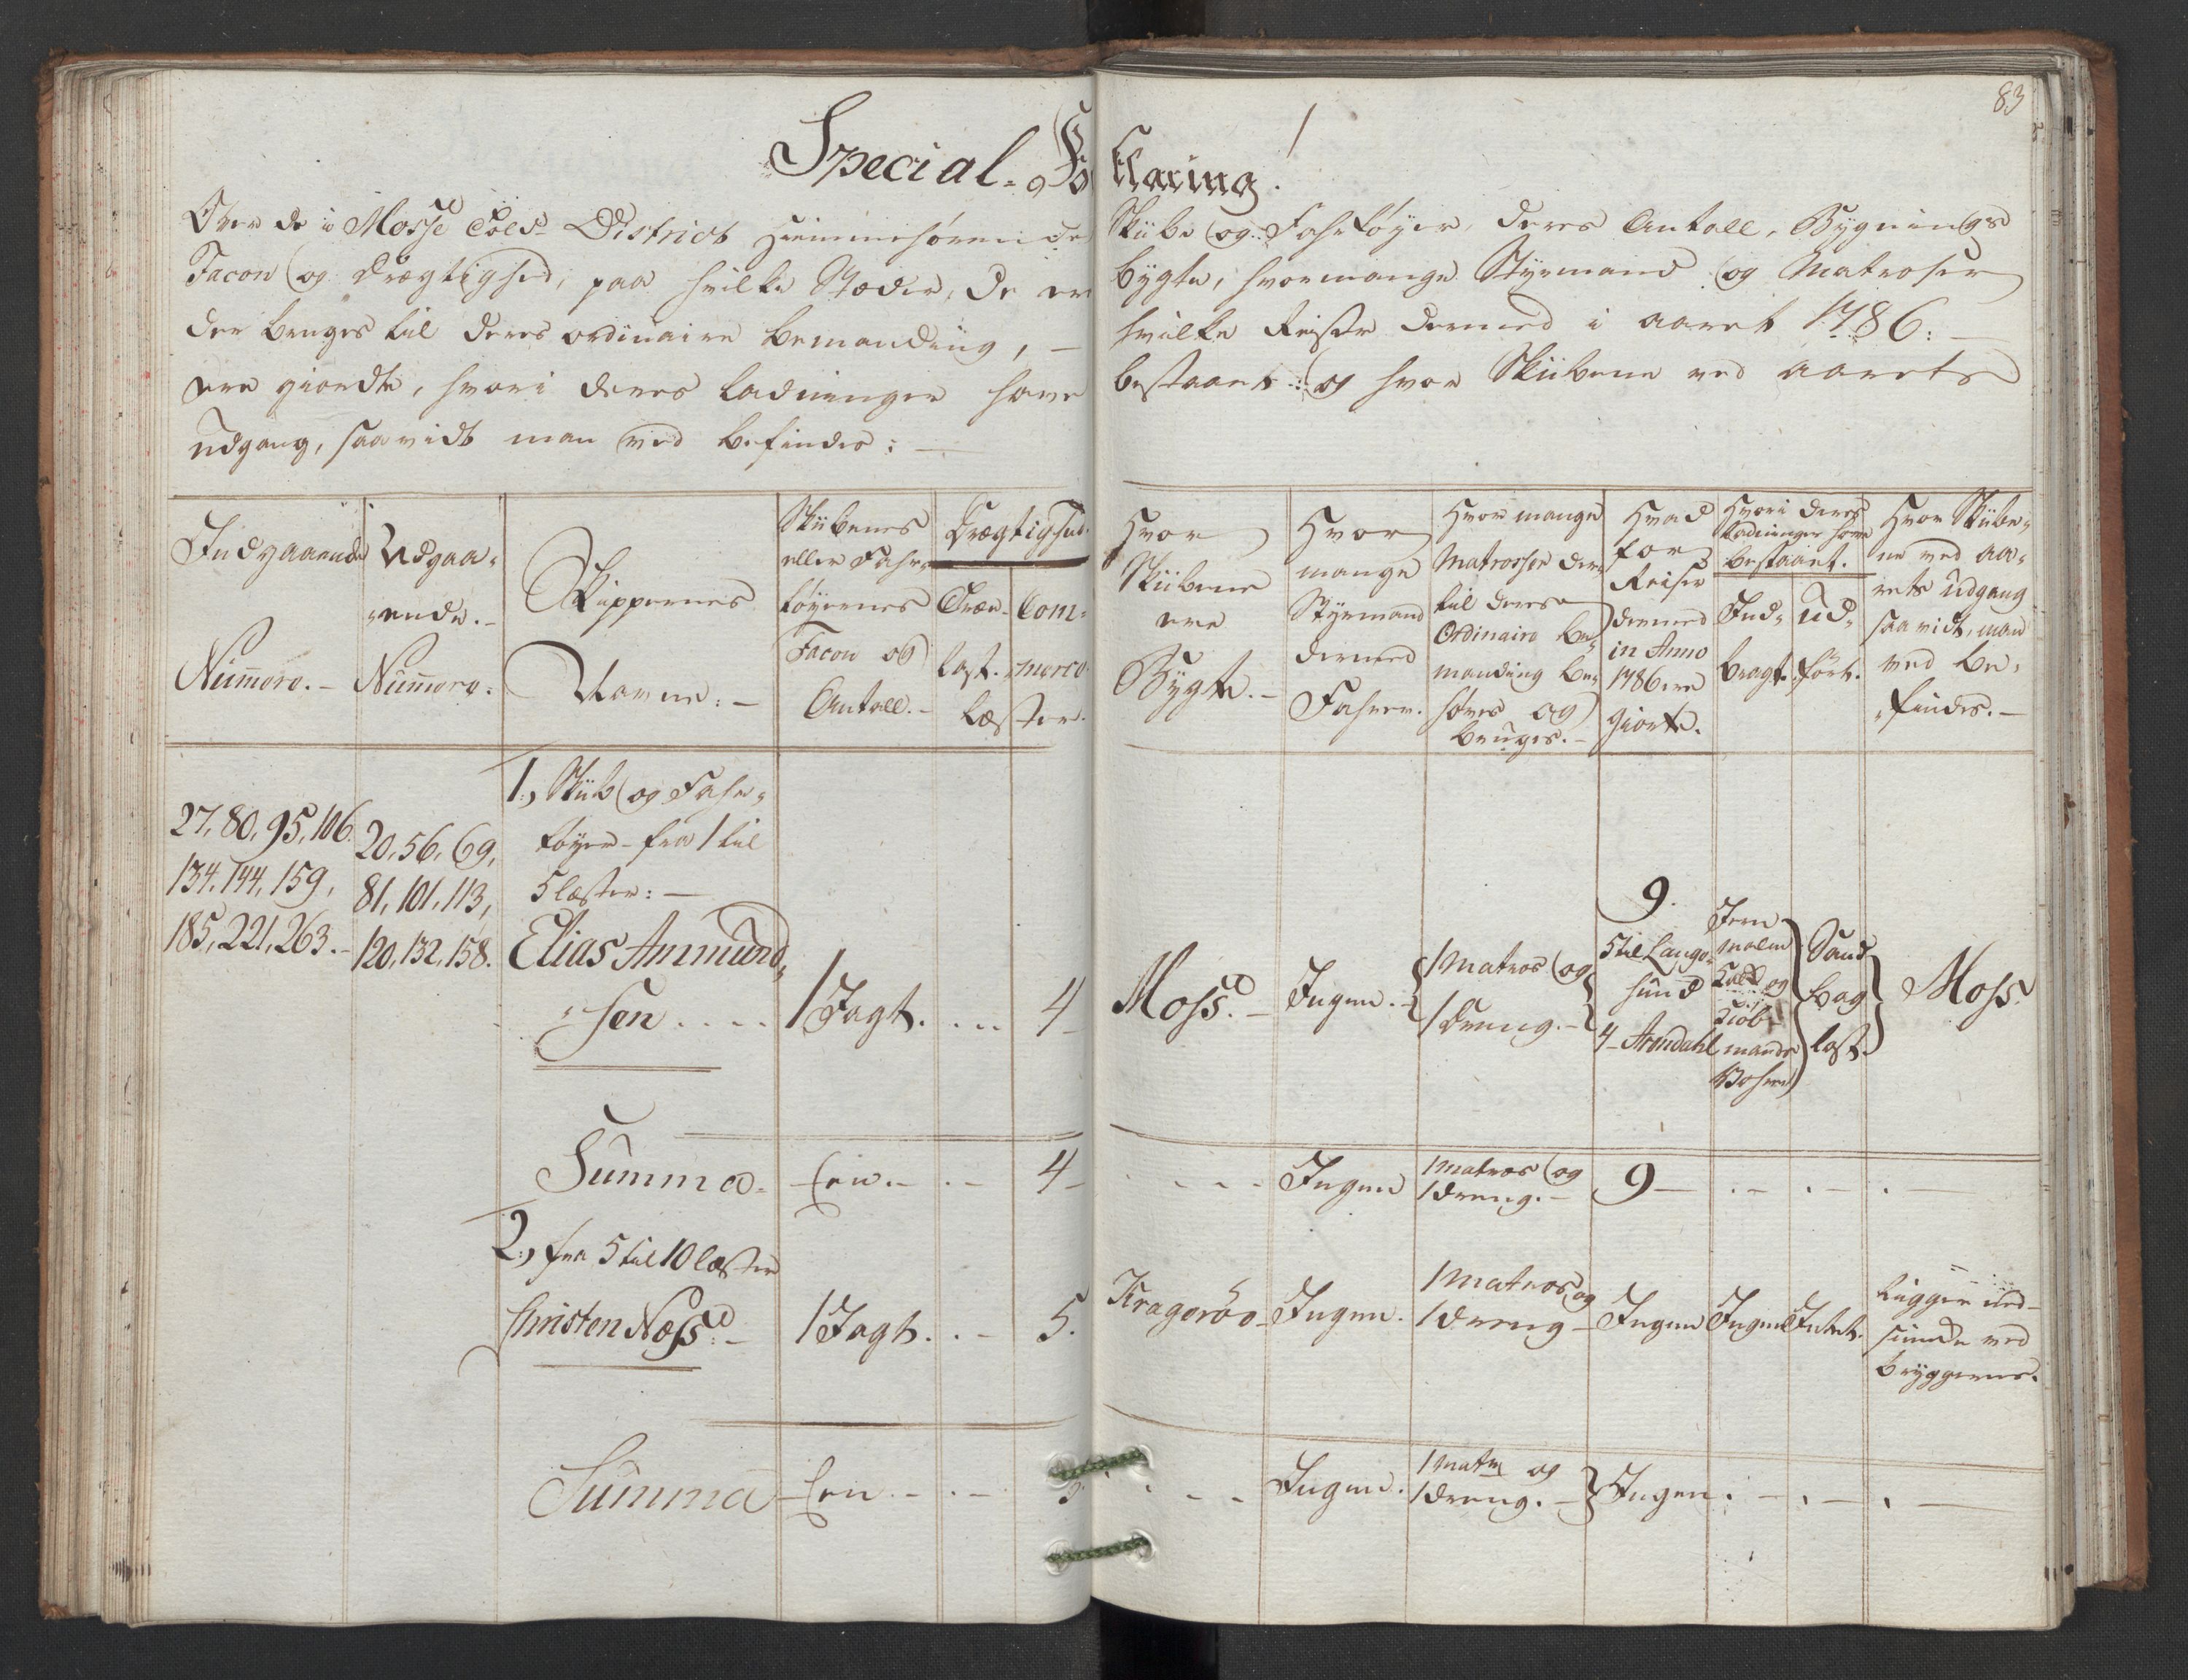 83
Special-Forklaring.
Over de i Mosse Told-District hiemmehørende Skibe og Fahrtøyer, deres Antall, Bygnings
Facon og Drægtighed, paa hvilke Stæder, de ere bygte, hvormange Styrmænd og Matroser
der bruges til deres ordinaire bemanding, — hvilke Reiser dermed i aaret 1786: —
ere giordte, hvori deres ladninger have bestaaet: og hvor Skibene ved aarets
udgang, saavidt man ved befindes: —
Indgaaende
Numero. —
Udgaa-
ende. —
Numoro:
Skippernes
Navne: —
Skibenes
eller Fahr-
tøyernes
Facon og
Antall. —
Drægtighed.
Træ-
last.
Com-
merce
læster.
Hvor
Skibene
ere
Bygte. —
Hvor
mange
Styrmænd
dermed
Fahrer.
Hvor mange
Matrosser der
til deres
Ordinaire be-
manding be-
høves og
bruges. —
Hvad
for
Reiser
dermed
in Anno
1786 ere
giorte.
Hvori deres
ladninger have
bestaaet.
Ind-
bragt.
Ud-
ført.
Hvor Skibe-
ne ved aa-
rets udgang
saavidt, man
ved be-
findes. —
1, Skib og Fahr-
tøyer fra 1 til
5 læster: —
27, 80, 95, 106.
134, 144, 159,
185, 221, 263. —
20, 56, 69,
81, 101, 113,
120, 132, 158.
Elias Ammund-
sen . . . .
1 Jagt. . . .
4 —
Moss. —
Ingen. —
1 Matros og
1 Dreng. —
9.
5 til Lange-
sund
4 — Arendahl
Jern
malm
Kalk og
Kiøb-
mands
Vahre
Sand
bag
last.
Moss.
Summa —
Een. — . —
4 —
. — — —
Ingen
1 Matros og
1 Dreng. —
9 —
. — . — . —
2, fra 5 til 10 læster
Christen Næss. —
1 Jagt. . —
5.
Krageröe —
Ingen.
1 Matros og
1 Dreng —
Ingen
Ingen
Intet.
ligger ned-
sunken ved
bryggerne.
Summa
Een — . —
5.
. — —
Ingen.
1 Matr. og
1 Dreng. —
Ingen. — . — . —